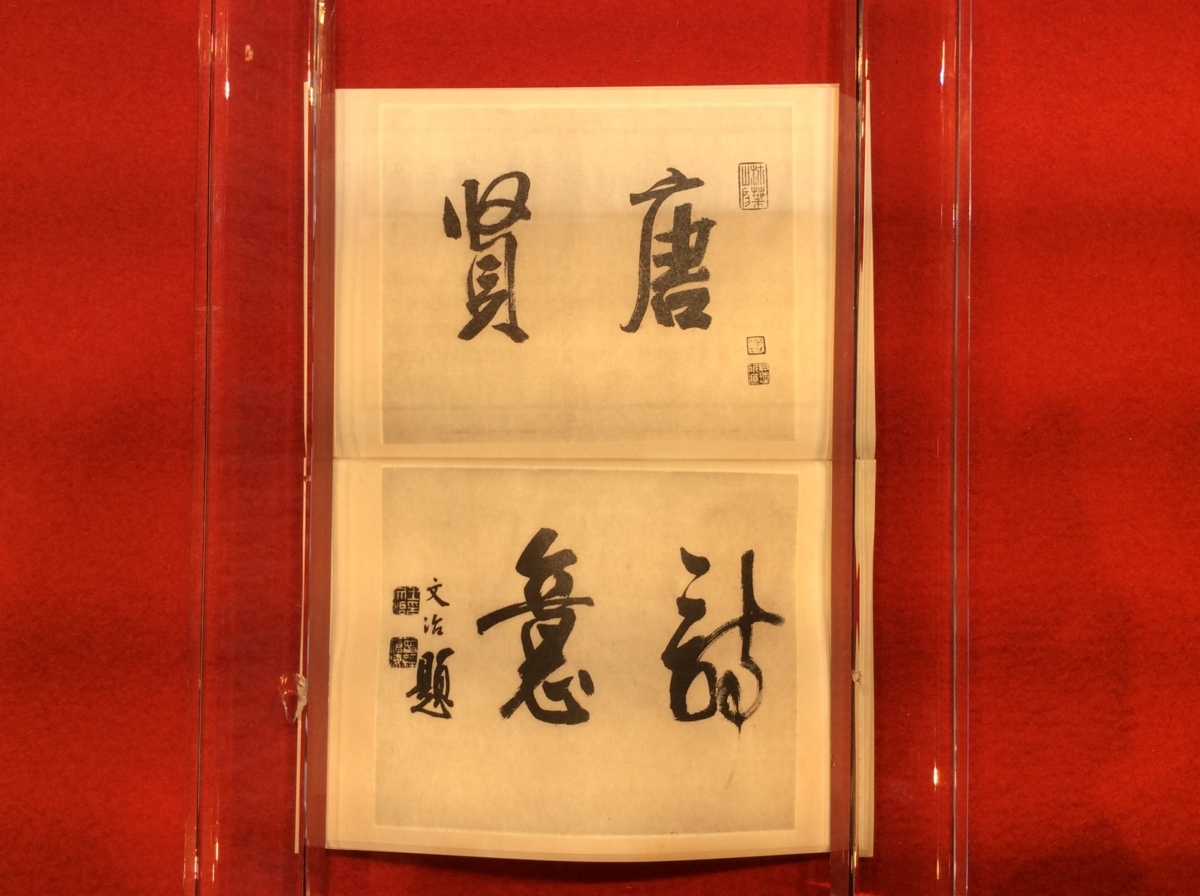 唐賢
詩意
文治題